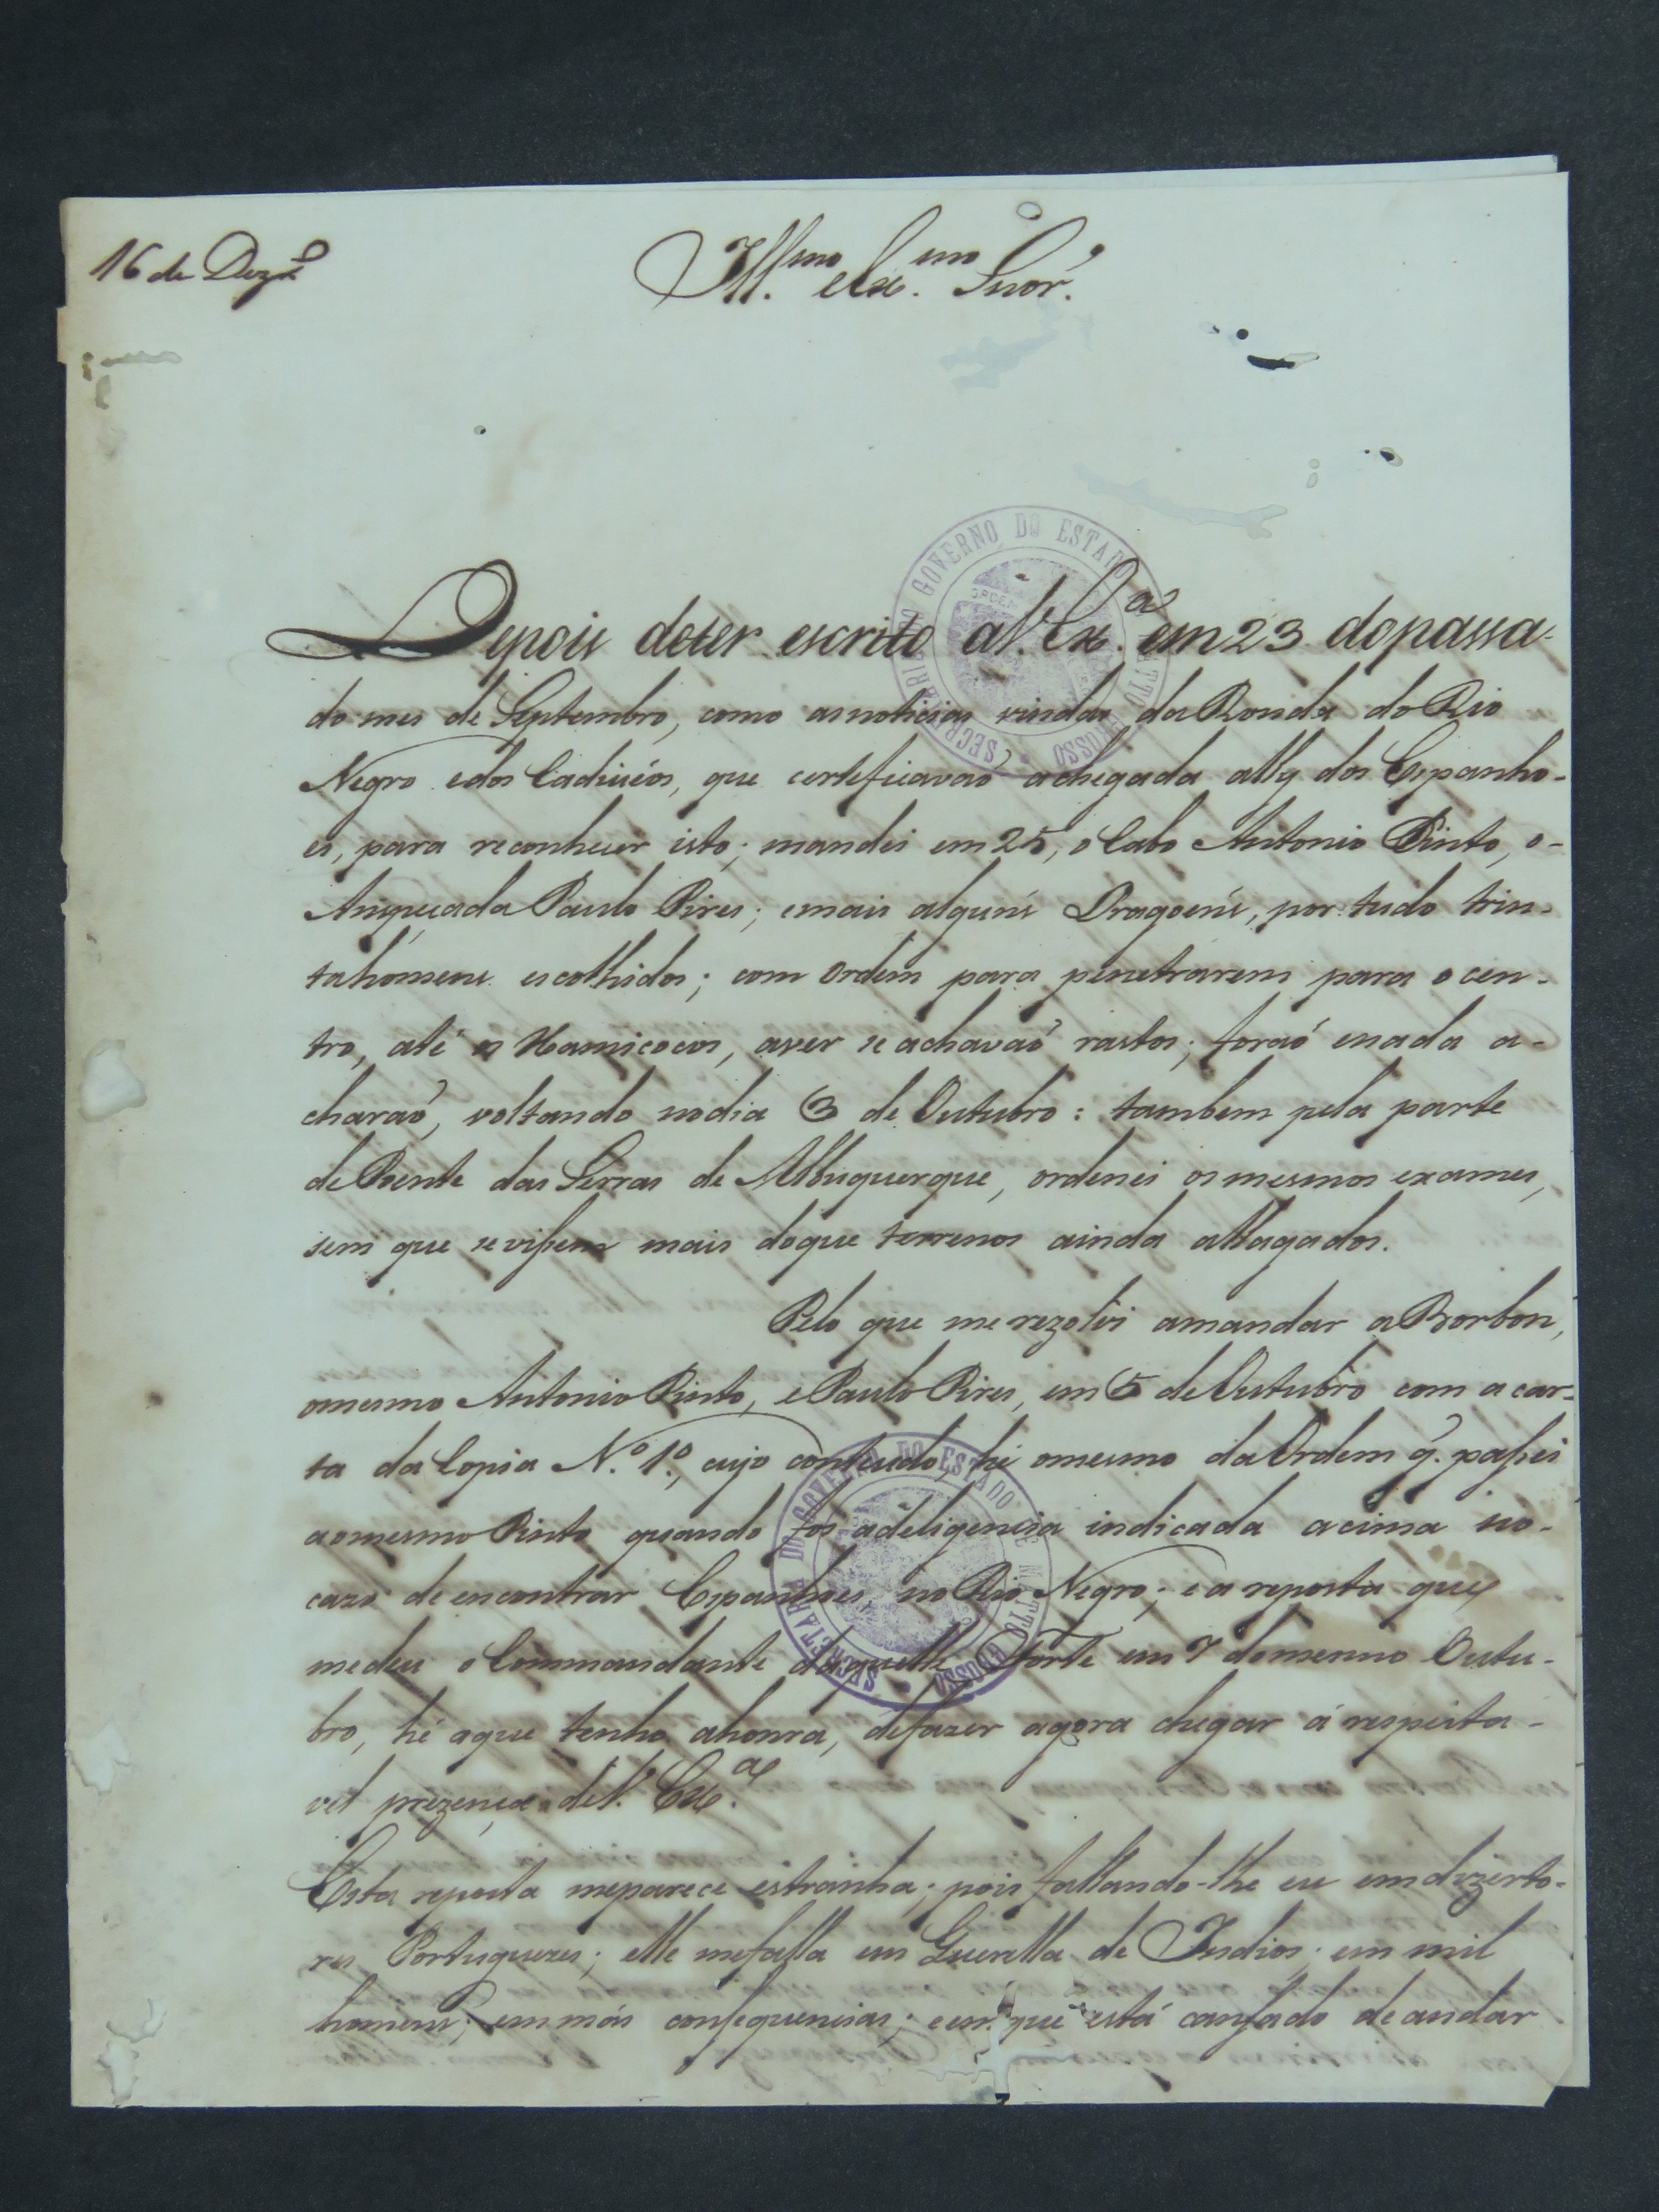 16 de Dezro
Illmo. eEx.mo Snór.
Depois deter escrito aV. Ex.a em 23 dopassa-
do mes de Septembro, como asnoticias vindas daRonda doRio
Negro edos Cadiuéos, que certeficavaõ achegada ally dos Espanho-
es, para reconhecer isto; mandei em 25, o Cabo Antonio Pinto, o-
Anspeçada Paulo Pires; emais alguns Dragoens, por tudo trin-
tahomens escolhidos; com ordem para penetrarem para o cen-
tro, até os Hamicocos, aver se achavaõ rastos; foraõ enada a-
charaõ, voltando nodia 3 de Outubro: tambem pela parte
dePoente das Serras de Albuquerque, ordenei osmesmos exames,
sem que sevissem mais doque terrenos ainda allagados.
Pelo que merezolvi amandar aBorbon,
omesmo Antonio Pinto, ePaulo Pires, em 5 deOutubro com a car-
ta daCopia N.º 1º, cujo contheudo, hé omesmo daOrdem q̃. passei
aomesmo Pinto quando foi adeligencia indicada acima no-
cazo de encontrar Espanhoes, no Rio Negro; e a reposta que
medeu oCommandante daquelle Forte em 7 domesmo Outu-
bro, hé aque tenho ahonra, defazer agora chegar á respeita-
vel prezença deV. Ex.a
Esta reposta meparece estranha; pois fallando-lhe eu emdizerto-
res Portuguezes; elle mefalla em Guerella de Indios; em mil
homens; emmás consequencias; eem que está cansado de andar
SECRETARIA DO GOVERNO DO ESTADO DE MATTO GROSSO
SECRETARIA DO GOVERNO DO ESTADO DE MATTO GROSSO